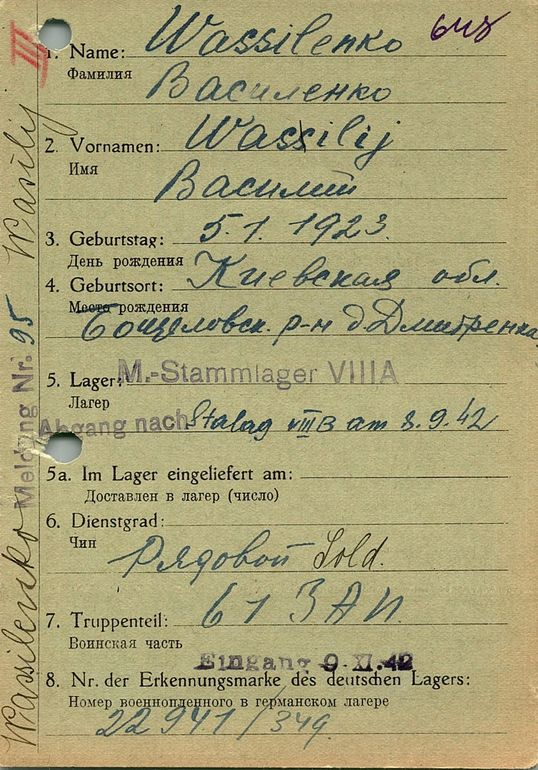 III
648
1. Name: Wassilenko
Фамилия
Василенко
2. Vornamen: Wassilij
Имя
Василий
3. Geburtstag: 5.1.1923.
День рождения
4. Geburtsort: Киевская обл.
Место рождения
р-н д. Дмитренка
5. Lager: M.-Stammlager VIIIA
Лагер
Abgang nach Stalag VIIIB am 8.9.42
5a. Im Lager eingeliefert am:
Доставлен в лагер (число)
6. Dienstgrad:
Чин
Рядовой Sold.
7. Truppenteil: 61 ЗАП.
Воинская часть
Eingang 9. XI. 42
8. Nr. der Erkennungsmarke des deutschen Lagers:
Номер военнопленного в германском лагере
22941/349.
Wassilenko Wasilij
Meldung Nr. 95